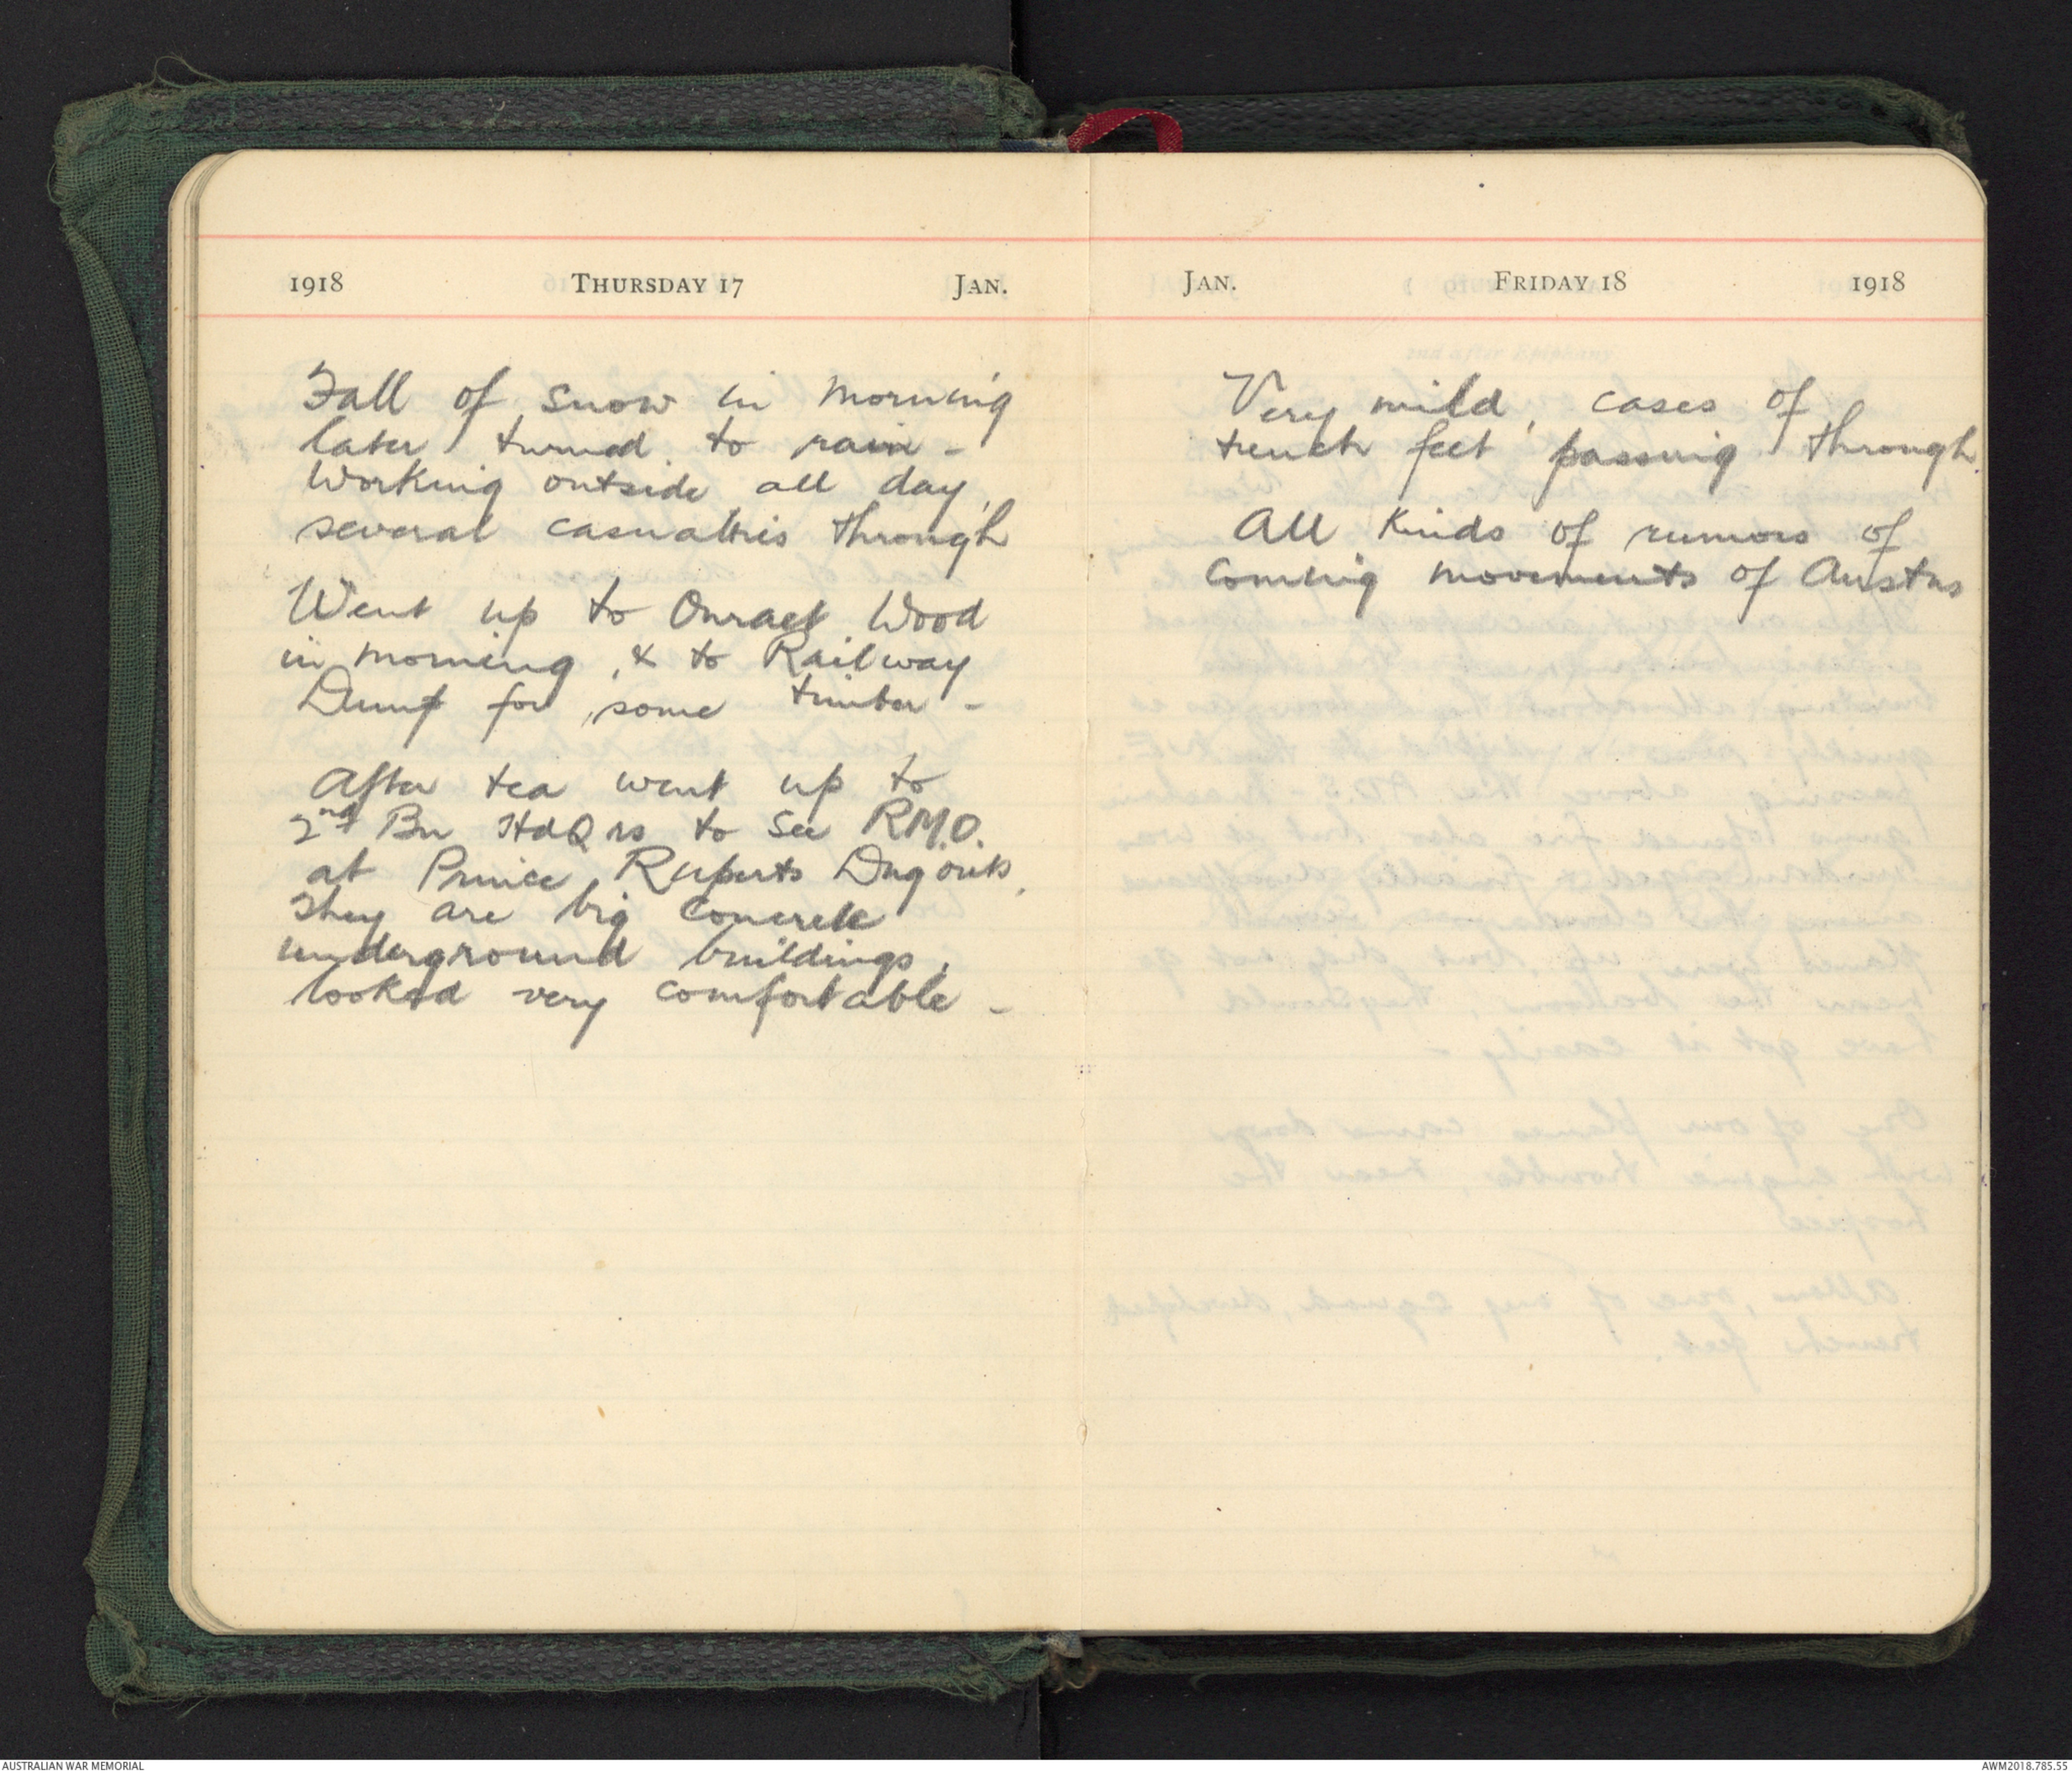 1918 THURSDAY 17 JAN.
Fall of snow in morning
later turned to rain -
Working outside all day,
several casualties through
Went up to Onraet Wood
in morning, & to Railway
Dump for some timber -
After tea went up to
2nd Bn HdQrs to see R.M.O.
at Prince Ruperts Dugouts,
They are big concrete
underground buildings,
looked very comfortable -
JAN. FRIDAY 18 1918
Very mild, cases of
trench feet passing through.
All kinds of rumors of
coming movements of Austns
AUSTRALIAN WAR MEMORIAL
AWM2018.785.55